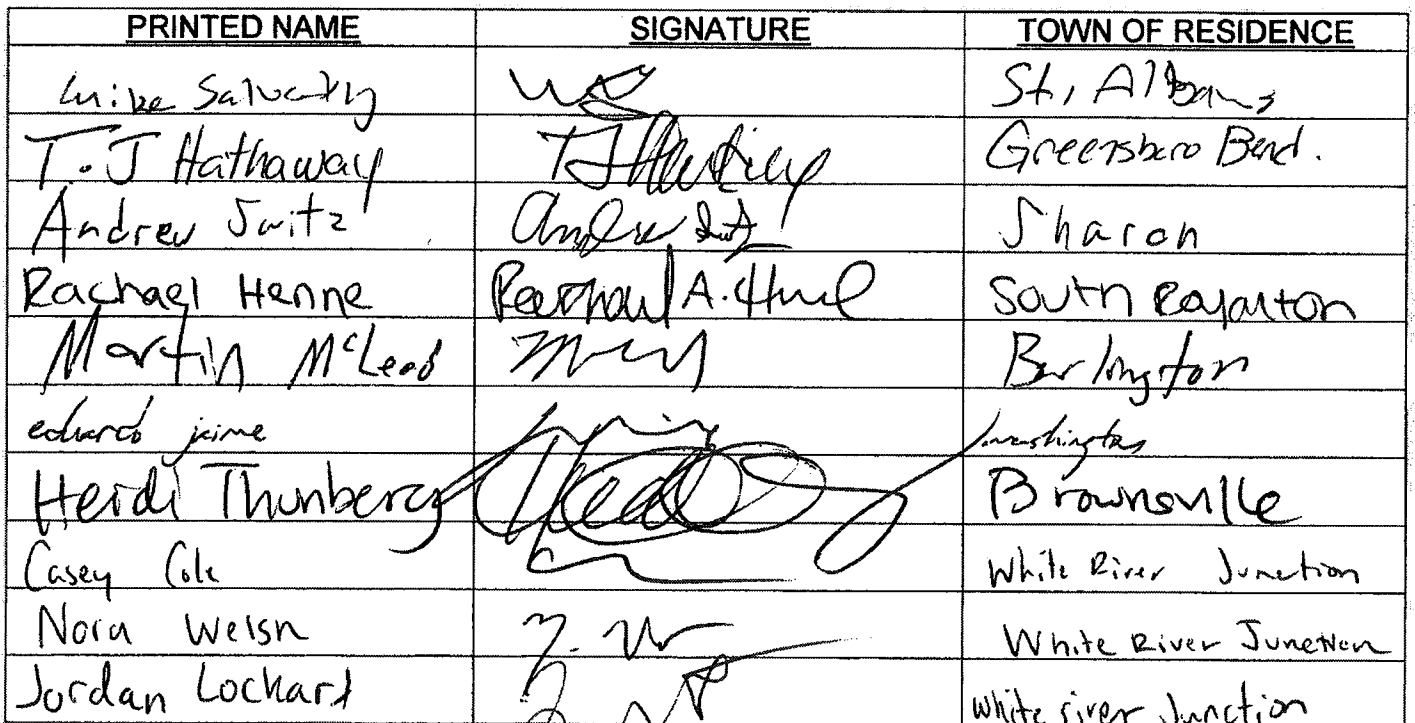 PRINTED NAME SIGNATURE TOWN OF RESIDENCE
Mike St, Albans
T.J Hathaway TJ Hathaway Greensboro Bend.
Andrew Switz Andrew Sharon
Rachael Henne Rachael A. Henne South Royalton
Martin McLeod Burlington
eduardo jaime washington
Heidi Thunberg Heidi Brownsville
Casey Cole White River Junction
Nora Welsh White River Junction
Jordan Lockart white river Junction